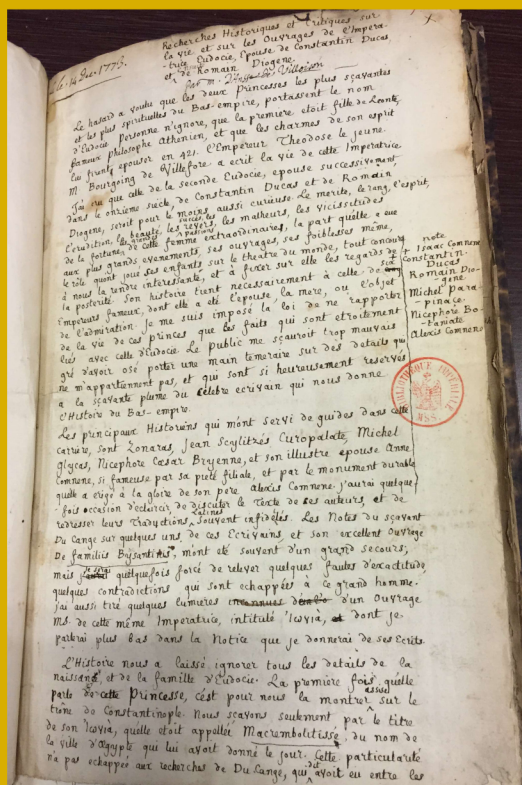 Lu le 14 Dec. 1773.
Recherches Historiques et Critiques sur
la vie et sur les Ouvrages de l'Impera-
-trice Eudocie, Epouse de Constantin Ducas,
et de Romain Diogene.
par M. d'Ansse de Villoison
Le hasard a voulu que les deux Princesses les plus sçavantes
et les plus spirituelles du Bas-empire, portassent le nom
d'Eudocie. Personne n'ignore, que la premiere etoit fille de Leonte,
fameux philosophe Athenien, et que les charmes de son esprit
lui firent epouser en 421. l'Empereur Theodose le jeune.
M. Bourgoing de Villefore a ecrit la vie de cette Imperatrice.
J'ai cru que celle de la seconde Eudocie, epouse successivement,
dans le onziéme siécle, de Constantin Ducas et de Romain
Diogene, seroit pour le moins aussi curieuse. Le merite, le rang, l'esprit,
l'erudition, la beauté, les succès, les revers, les malheurs, les vicissitudes
de la fortune, les grandes passions de cette femme extraordinaires, la part qu'elle a eue
aux plus grands evenements, ses ouvrages, ses foiblesses même,
le rôle qu'ont joué ses enfants sur le theatre du monde, tout concourt
à nous la rendre interessante, et à fixer sur elle les regards de
la posterité. Son histoire tient necessairement à celle de six
Empereurs fameux, dont elle a eté l'epouse, la mere, ou l'objet
de l'admiration. Je me suis imposé la loi de ne rapporter
de la vie de ces princes que les faits qui sont etroitement
liés avec celle d'Eudocie. Le public me sçauroit trop mauvais
gré d'avoir osé porter une main temeraire sur des details qui
ne m'appartiennent pas, et qui sont si heureusement reservés
a la sçavante plume du célebre ecrivain qui nous donne
l'Histoire du Bas-empire.
+ note
Isaac Comnene
Constantin
Ducas
Romain Dio-
gene
Michel Para-
pinace.
Nicephore Bo-
taniate
Alexis Comnene
BIBLIOTHEQUE IMPERIALE
MSS.
Les principaux Historiens qui m'ont servi de guides dans cette
carriere, sont Zonaras, Jean Scylitzès Curopalate, Michel
Glycas, Nicephore Cæsar Bryenne, et son illustre epouse Anne
Comnene, si fameuse par sa pieté filiale, et par le monument durable
qu'elle a erigé à la gloire de son pere Alexis Comnene. J'aurai quelque
-fois occasion d'éclaircir de discuter le Texte de ses auteurs, et de
redresser leurs Traductions Latines souvent infidéles. Les Notes du sçavant
Du Cange sur quelques uns de ces Ecrivains, et son excellent Ouvrage
De familiis Bysantinis, m'ont eté souvent d'un grand secours;
mais je serai quelquefois forcé de relever quelques fautes d'exactitude,
quelques contradictions qui sont echappées à ce grand homme.
j'ai aussi tiré quelques lumieres d'un Ouvrage
Ms. de cette même Imperatrice, intitulé Ἰωνιὰ, dont je
parlerai plus bas dans la Notice que je donnerai de ses Ecrits.
L'Histoire nous a laissé ignorer tous les details de la
naissance, et de la famille d'Eudocie. La premiere fois qu'elle
parle de cette Princesse, c'est pour nous la montrer assise sur le
trône de Constantinople. Nous sçavons seulement, par le titre
de son Ἰωνιὰ, qu'elle etoit appellée Macrembolitisse, du nom de
la ville d'Ægypte qui lui avoit donné le jour. Cette particularité
n'a pas echappée aux recherches de Du Cange, qui dit avoir eu entre les